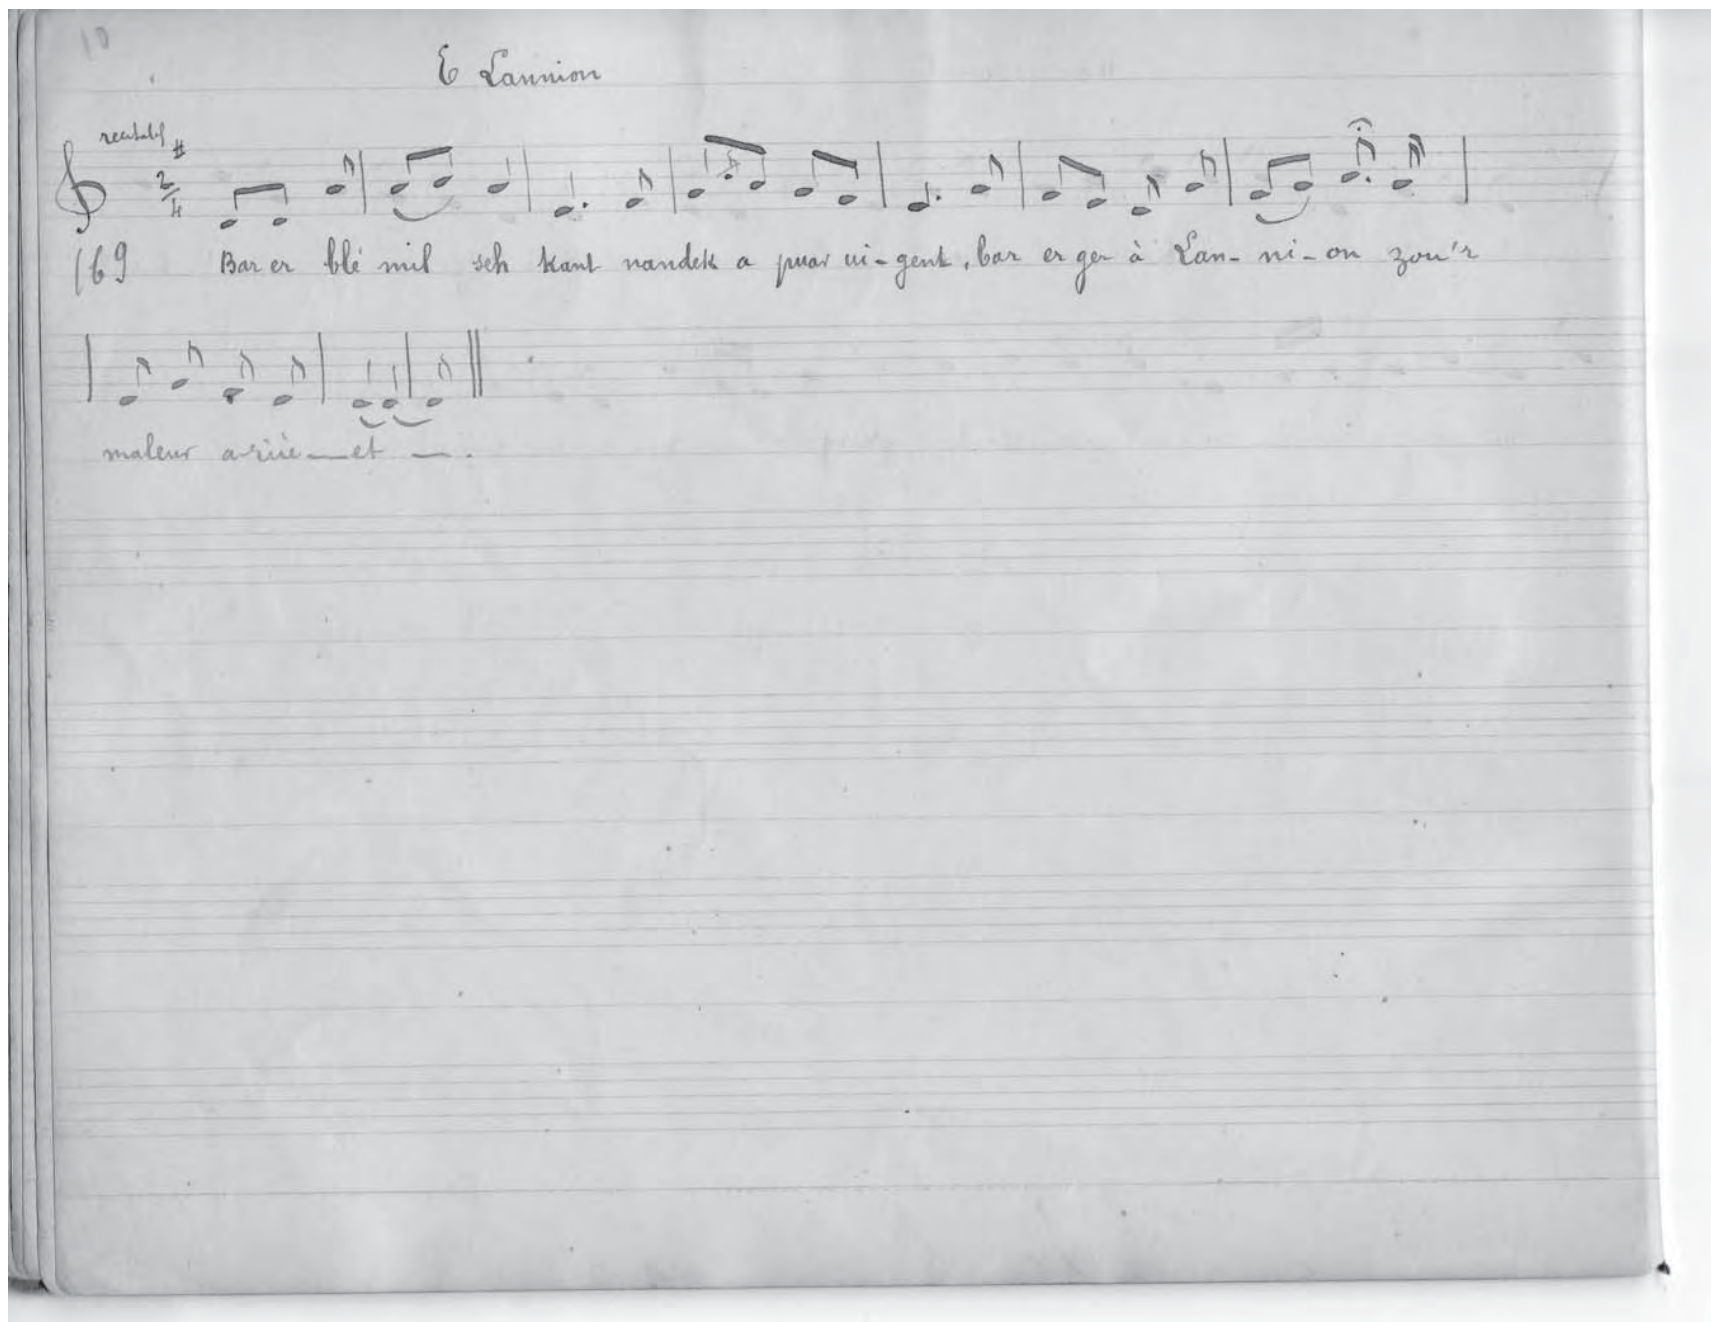 10
E Lannion
recitatif
2/4
169 Bar er blé mil seh kant nandek a puar ui-gent, bar er ger à Lan-ni-on zou'r
maleur a-riüe—et —.